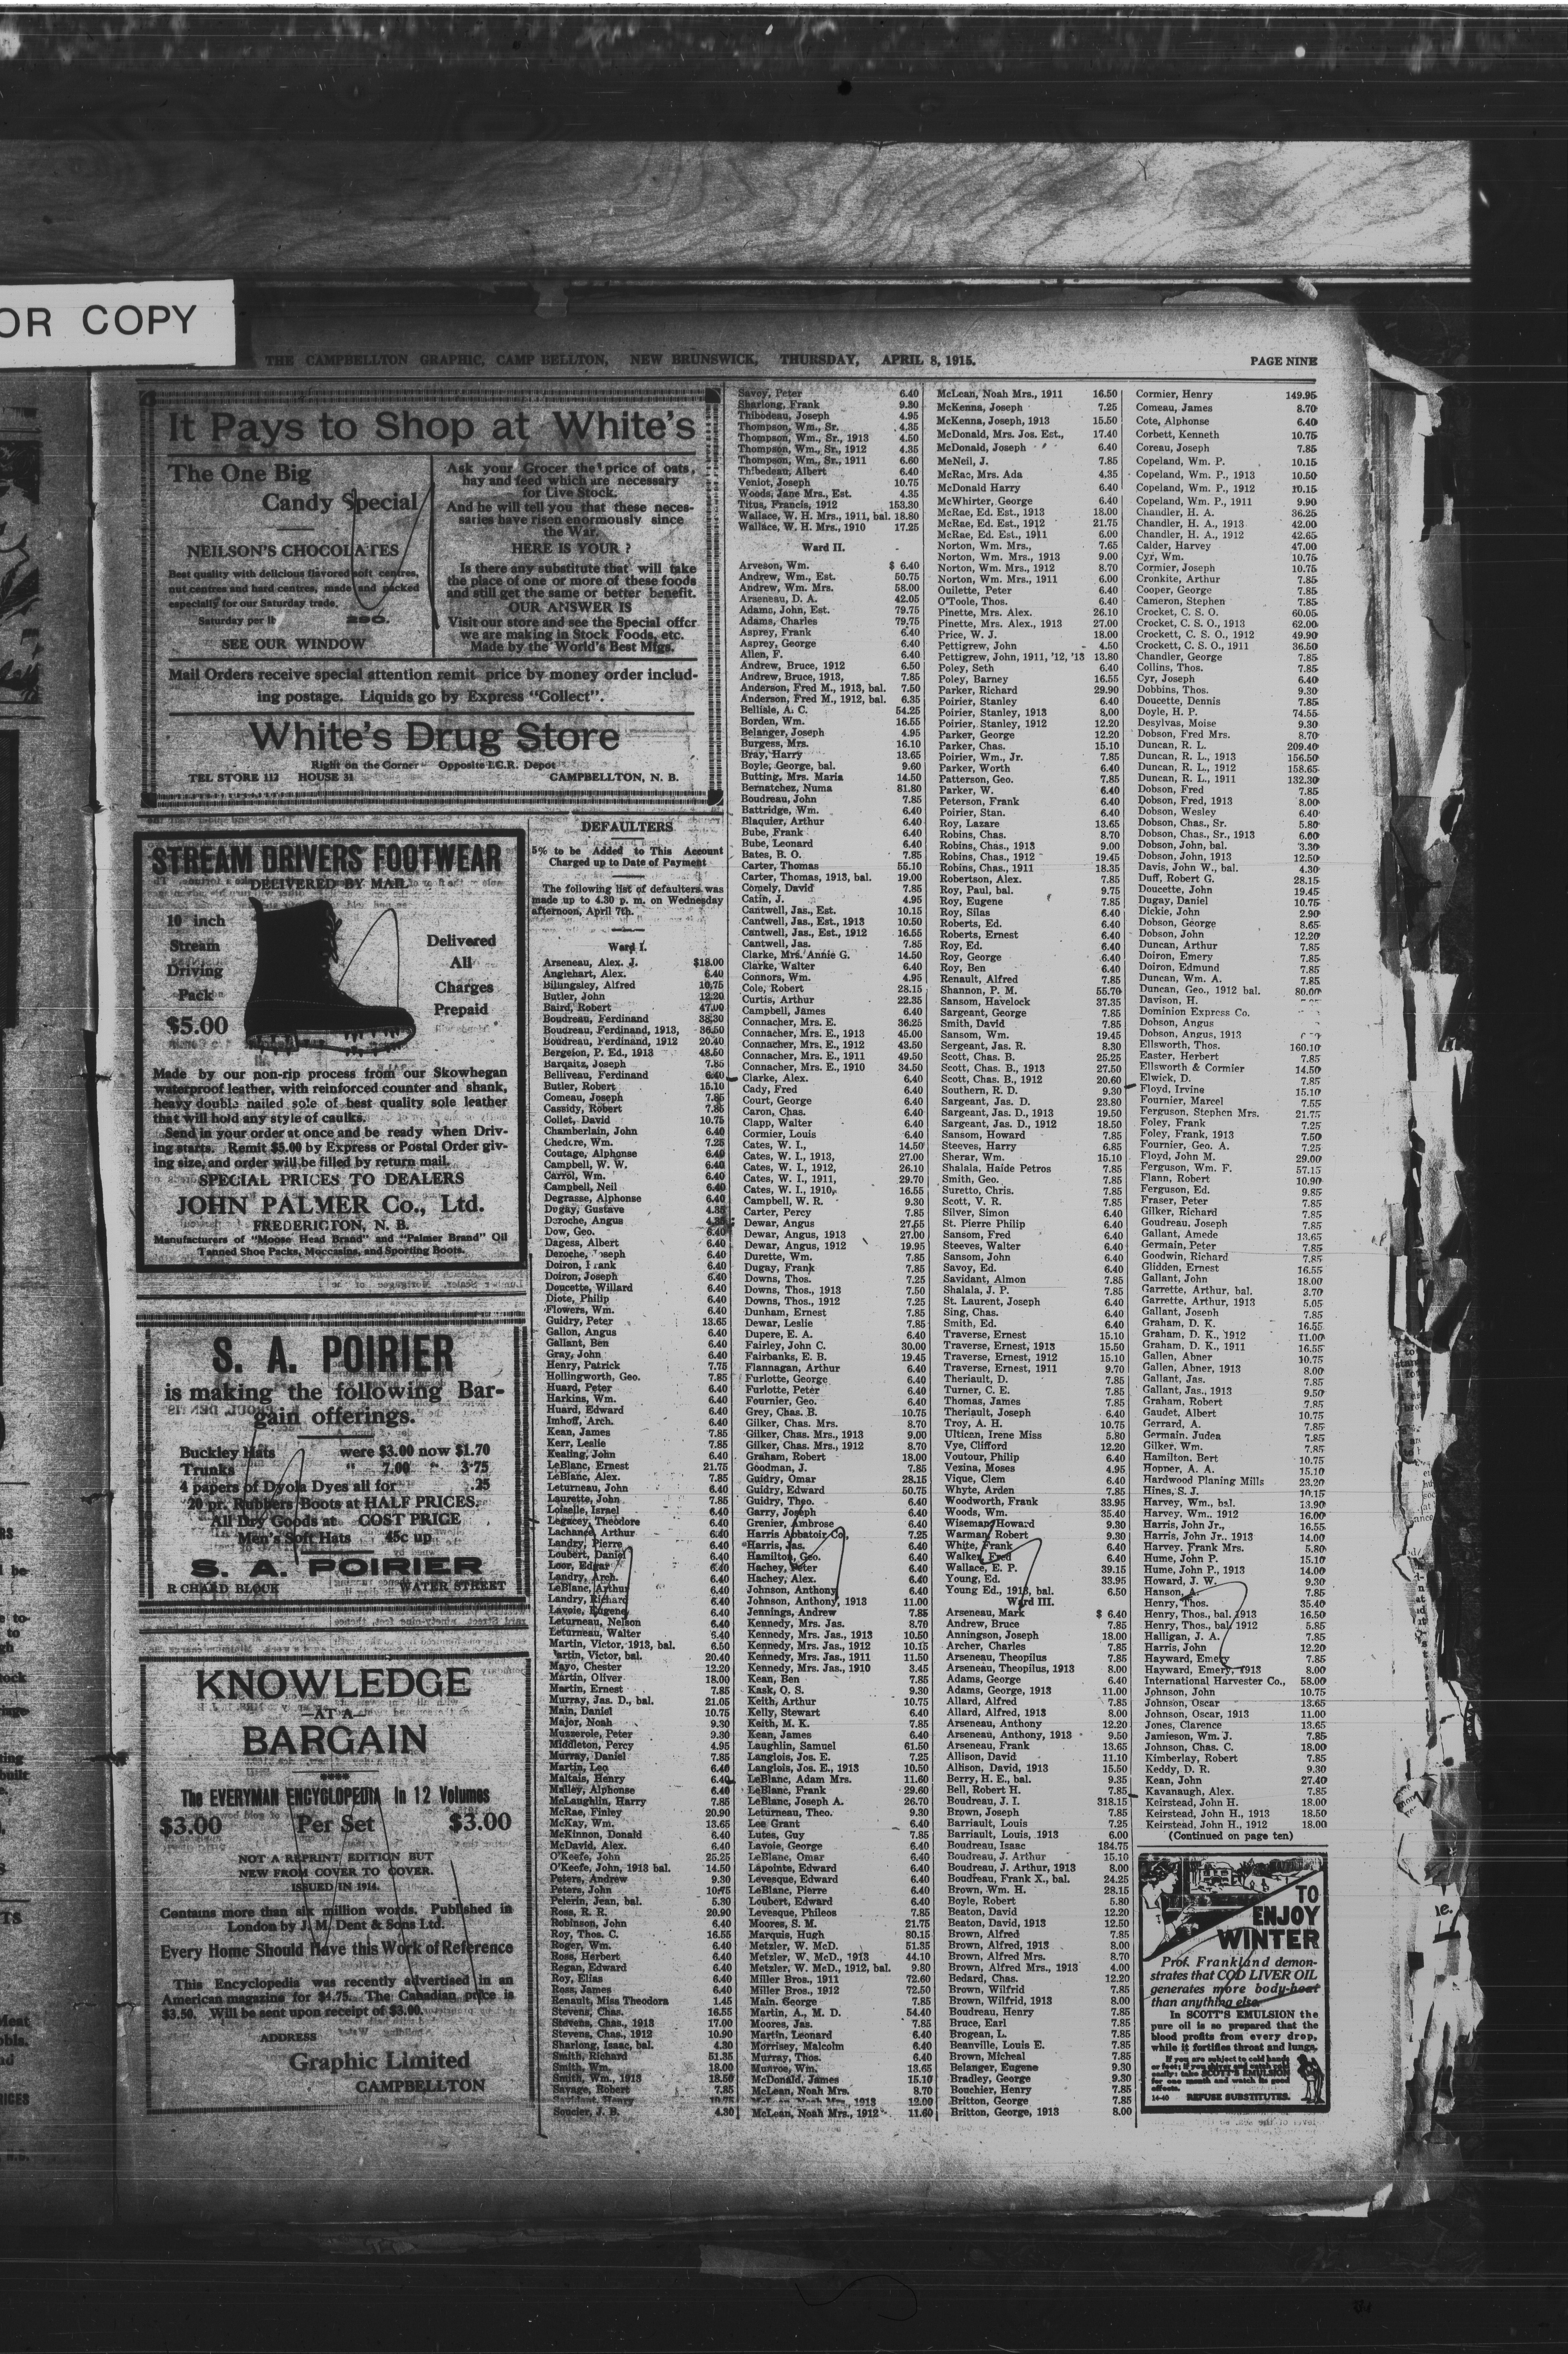 OR COPY
THE CAMPBELLTON GRAPHIC, CAMP BELLTON, NEW BRUNSWICK, THURSDAY, APRIL 8, 1915. PAGE NINE
It Pays to Shop at White's
The One Big
Candy Special
NEILSON'S CHOCOLATES
Best quality with delicious flavored soft centres,
nut centres and hard centres, made and packed
especially for our Saturday trade.
Saturday per lb 29c.
SEE OUR WINDOW
Ask your Grocer the price of oats,
hay and feed which are necessary
for Live Stock.
And he will tell you that these neces-
saries have risen enormously since
the War.
HERE IS YOUR ?
Is there any substitute that will take
the place of one or more of these foods
and still get the same or better benefit.
OUR ANSWER IS
Visit our store and see the Special offer
we are making in Stock Foods, etc.
Made by the World's Best Mfgs.
Mail Orders receive special attention remit price by money order includ-
ing postage. Liquids go by Express "Collect".
White's Drug Store
Right on the Corner Opposite I.C.R. Depot
TEL STORE 112 HOUSE 31 CAMPBELLTON, N. B.
STREAM DRIVERS FOOTWEAR
DELIVERED BY MAIL
10 inch
Stream
Driving
Pack
$5.00
Delivered
All
Charges
Prepaid
Made by our non-rip process from our Skowhegan
waterproof leather, with reinforced counter and shank,
heavy double nailed sole of best quality sole leather
that will hold any style of caulks.
Send in your order at once and be ready when Driv-
ing starts. Remit $5.00 by Express or Postal Order giv-
ing size, and order will be filled by return mail.
SPECIAL PRICES TO DEALERS
JOHN PALMER Co., Ltd.
FREDERICTON, N. B.
Manufacturers of "Moose Head Brand" and "Palmer Brand" Oil
Tanned Shoe Packs, Moccasins, and Sporting Boots.
S. A. POIRIER
is making the following Bar-
gain offerings.
Buckley Hats were $3.00 now $1.70
Trunks " 7.00 " 3.75
4 papers of Dyola Dyes all for .25
20 pr. Rubbers Boots at HALF PRICES.
All Dry Goods at COST PRICE
Men's Soft Hats 45c up
S. A. POIRIER
R CHARD BLOCK WATER STREET
KNOWLEDGE
—AT A—
BARGAIN
The EVERYMAN ENCYCLOPEDIA In 12 Volumes
$3.00 Per Set $3.00
NOT A REPRINT EDITION BUT
NEW FROM COVER TO COVER.
ISSUED IN 1914.
Contains more than six million words. Published in
London by J. M. Dent & Sons Ltd.
Every Home Should Have this Work of Reference
This Encyclopedia was recently advertised in an
American magazine for $4.75. The Canadian price is
$3.50. Will be sent upon receipt of $3.00.
ADDRESS
Graphic Limited
CAMPBELLTON
DEFAULTERS
5% to be Added to This Account
Charged up to Date of Payment
The following list of defaulters was
made up to 4.30 p. m. on Wednesday
afternoon, April 7th.
Ward I.
Arseneau, Alex. J. $18.00
Anglehart, Alex. 6.40
Billingsley, Alfred 10.75
Butler, John 12.20
Baird, Robert 47.00
Boudreau, Ferdinand 38.30
Boudreau, Ferdinand, 1913, 36.50
Boudreau, Ferdinand, 1912 20.40
Bergeron, P. Ed., 1913 48.50
Barqaitz, Joseph 7.85
Belliveau, Ferdinand 6.40
Butler, Robert 15.10
Comeau, Joseph 7.85
Cassidy, Robert 7.85
Collet, David 10.75
Chamberlain, John 6.40
Chedore, Wm. 7.25
Coutage, Alphonse 6.40
Campbell, W. W. 6.40
Carrol, Wm. 6.40
Campbell, Neil 6.40
Degrasse, Alphonse 6.40
Dugay, Gustave 4.35
Deroche, Angus 4.35
Dow, Geo. 6.40
Dagess, Albert 6.40
Deroche, Joseph 6.40
Doiron, Frank 6.40
Doiron, Joseph 6.40
Doucette, Willard 6.40
Diote, Philip 6.40
Flowers, Wm. 6.40
Guidry, Peter 13.65
Gallon, Angus 6.40
Gallant, Ben 6.40
Gray, John 6.40
Henry, Patrick 7.75
Hollingworth, Geo. 7.85
Huard, Peter 6.40
Harkins, Wm. 6.40
Huard, Edward 6.40
Imhoff, Arch. 6.40
Kean, James 7.85
Kerr, Leslie 7.85
Kealing, John 6.40
LeBlanc, Ernest 21.75
LeBlanc, Alex. 7.85
Leturneau, John 6.40
Laurette, John 7.85
Loiselle, Israel 6.40
Legacey, Theodore 6.40
Lachance, Arthur 6.40
Landry, Pierre 6.40
Loubert, Daniel 6.40
Loor, Edgar 6.40
Landry, Arch. 6.40
LeBlanc, Arthur 6.40
Landry, Richard 6.40
Lavoie, Eugene 6.40
Leturneau, Nelson 6.40
Leturneau, Walter 6.40
Martin, Victor, 1913, bal. 6.50
Martin, Victor, bal. 20.40
Mayo, Chester 12.20
Martin, Oliver 18.00
Martin, Ernest 7.85
Murray, Jas. D., bal. 21.05
Main, Daniel 10.75
Major, Noah 9.30
Muzzerole, Peter 9.30
Middleton, Percy 4.95
Murray, Daniel 7.85
Martin, Leo 6.40
Maltais, Henry 6.40
Malley, Alphonse 6.40
McLaughlin, Harry 7.85
McRae, Finley 20.90
McKay, Wm. 13.65
McKinnon, Donald 6.40
McDavid, Alex. 6.40
O'Keefe, John 25.25
O'Keefe, John, 1913 bal. 14.50
Peters, Andrew 9.30
Peters, John 10.75
Pelerin, Jean, bal. 5.30
Ross, R. R. 20.90
Robinson, John 6.40
Roy, Thos. C. 16.55
Roger, Wm. 6.40
Ross, Herbert 6.40
Regan, Edward 6.40
Roy, Elias 6.40
Ross, James 6.40
Renault, Miss Theodora 1.45
Stevens, Chas. 16.55
Stevens, Chas., 1913 17.00
Stevens, Chas., 1912 10.90
Sharlong, Isaac, bal. 4.30
Smith, Richard 51.35
Smith, Wm. 18.00
Smith, Wm., 1913 18.50
Savage, Robert 7.85
Savidant, Henry 10.75
Soucier, J. B. 4.30
Savoy, Peter 6.40
Sharlong, Frank 9.30
Thibodeau, Joseph 4.95
Thompson, Wm., Sr. 4.35
Thompson, Wm., Sr., 1913 4.50
Thompson, Wm., Sr., 1912 4.35
Thompson, Wm., Sr., 1911 6.60
Thibedeau, Albert 6.40
Veniot, Joseph 10.75
Woods, Jane Mrs., Est. 4.35
Titus, Francis, 1912 153.30
Wallace, W. H. Mrs., 1911, bal. 18.80
Wallace, W. H. Mrs., 1910 17.25
Ward II.
Arveson, Wm. $ 6.40
Andrew, Wm., Est. 50.75
Andrew, Wm. Mrs. 58.00
Arseneau, D. A. 42.05
Adams, John, Est. 79.75
Adams, Charles 79.75
Asprey, Frank 6.40
Asprey, George 6.40
Allen, F. 6.40
Andrew, Bruce, 1912 6.50
Andrew, Bruce, 1913, 7.85
Anderson, Fred M., 1913, bal. 7.50
Anderson, Fred M., 1912, bal. 6.35
Bellisle, A. C. 54.25
Borden, Wm. 16.55
Belanger, Joseph 4.95
Burgess, Mrs. 16.10
Bray, Harry 13.65
Boyle, George, bal. 9.60
Butting, Mrs. Maria 14.50
Bernatchez, Numa 81.80
Boudreau, John 7.85
Battridge, Wm. 6.40
Blaquier, Arthur 6.40
Bube, Frank 6.40
Bube, Leonard 6.40
Bates, B. O. 7.85
Carter, Thomas 55.10
Carter, Thomas, 1913, bal. 19.00
Comely, David 7.85
Catin, J. 4.95
Cantwell, Jas., Est. 10.15
Cantwell, Jas., Est., 1913 10.50
Cantwell, Jas., Est., 1912 16.55
Cantwell, Jas. 7.85
Clarke, Mrs. Annie G. 14.50
Clarke, Walter 6.40
Connors, Wm. 4.95
Cole, Robert 28.15
Curtis, Arthur 22.35
Campbell, James 6.40
Connacher, Mrs. E. 36.25
Connacher, Mrs. E., 1913 45.00
Connacher, Mrs. E., 1912 43.50
Connacher, Mrs. E., 1911 49.50
Connacher, Mrs. E., 1910 34.50
Clarke, Alex. 6.40
Cady, Fred 6.40
Court, George 6.40
Caron, Chas. 6.40
Clapp, Walter 6.40
Cormier, Louis 6.40
Cates, W. I., 14.50
Cates, W. I., 1913, 27.00
Cates, W. I., 1912, 26.10
Cates, W. I., 1911, 29.70
Cates, W. I., 1910, 16.55
Campbell, W. R. 9.30
Carter, Percy 7.85
Dewar, Angus 27.55
Dewar, Angus, 1913 27.00
Dewar, Angus, 1912 19.95
Durette, Wm. 7.85
Dugay, Frank 7.85
Downs, Thos. 7.25
Downs, Thos., 1913 7.50
Downs, Thos., 1912 7.25
Dunham, Ernest 7.85
Dewar, Leslie 7.85
Dupere, E. A. 6.40
Fairley, John C. 30.00
Fairbanks, E. B. 19.45
Flannagan, Arthur 6.40
Furlotte, George 6.40
Furlotte, Peter 6.40
Fournier, Geo. 6.40
Grey, Chas. B. 10.75
Gilker, Chas. Mrs. 8.70
Gilker, Chas. Mrs., 1913 9.00
Gilker, Chas. Mrs., 1912 8.70
Graham, Robert 18.00
Goodman, J. 7.85
Guidry, Omar 28.15
Guidry, Edward 50.75
Guidry, Theo. 6.40
Garry, Joseph 6.40
Grenier, Ambrose 6.40
Harris Abbatoir Co., 7.25
Harris, Jas. 6.40
Hamilton, Geo. 6.40
Hachey, Peter 6.40
Hachey, Alex. 6.40
Johnson, Anthony 6.40
Johnson, Anthony, 1913 11.00
Jennings, Andrew 7.85
Kennedy, Mrs. Jas. 8.70
Kennedy, Mrs. Jas., 1913 10.50
Kennedy, Mrs. Jas., 1912 10.15
Kennedy, Mrs. Jas., 1911 11.50
Kennedy, Mrs. Jas., 1910 3.45
Kean, Ben 7.85
Kask, O. S. 9.30
Keith, Arthur 10.75
Kelly, Stewart 6.40
Keith, M. K. 7.85
Kean, James 6.40
Laughlin, Samuel 61.50
Langlois, Jos. E. 7.25
Langlois, Jos. E., 1913 10.50
LeBlanc, Adam Mrs. 11.60
LeBlanc, Frank 29.60
LeBlanc, Joseph A. 26.70
Leturneau, Theo. 9.30
Lee Grant 6.40
Lutes, Guy 7.85
Lavoie, George 6.40
LeBlanc, Omar 6.40
Lapointe, Edward 6.40
Levesque, Edward 6.40
LeBlanc, Pierre 6.40
Loubert, Edward 6.40
Levesque, Phileos 7.85
Moores, S. M. 21.75
Marquis, Hugh 80.15
Metzler, W. McD. 51.35
Metzler, W. McD., 1913 44.10
Metzler, W. McD., 1912, bal. 9.80
Miller Bros., 1911 72.60
Miller Bros., 1912 72.50
Main, George 7.85
Martin, A., M. D. 54.40
Moores, Jas. 7.85
Martin, Leonard 6.40
Morrisey, Malcolm 6.40
Murray, Thos. 6.40
Munroe, Wm. 13.65
McDonald, James 15.10
McLean, Noah Mrs. 8.70
McLean, Noah Mrs., 1913 12.00
McLean, Noah Mrs., 1912 11.60
McLean, Noah Mrs., 1911 16.50
McKenna, Joseph 7.25
McKenna, Joseph, 1913 15.50
McDonald, Mrs. Jos. Est., 17.40
McDonald, Joseph 6.40
MeNeil, J. 7.85
McRae, Mrs. Ada 4.35
McDonald Harry 6.40
McWhirter, George 6.40
McRae, Ed. Est., 1913 18.00
McRae, Ed. Est., 1912 21.75
McRae, Ed. Est., 1911 6.00
Norton, Wm. Mrs., 7.65
Norton, Wm. Mrs., 1913 9.00
Norton, Wm. Mrs., 1912 8.70
Norton, Wm. Mrs., 1911 6.00
Ouilette, Peter 6.40
O'Toole, Thos. 6.40
Pinette, Mrs. Alex. 26.10
Pinette, Mrs. Alex., 1913 27.00
Price, W. J. 18.00
Pettigrew, John 4.50
Pettigrew, John, 1911, '12, '13 13.80
Poley, Seth 6.40
Poley, Barney 16.55
Parker, Richard 29.90
Poirier, Stanley 6.40
Poirier, Stanley, 1913 8.00
Poirier, Stanley, 1912 12.20
Parker, George 12.20
Parker, Chas. 15.10
Poirier, Wm., Jr. 7.85
Parker, Worth 6.40
Patterson, Geo. 7.85
Parker, W. 6.40
Peterson, Frank 6.40
Poirier, Stan. 6.40
Roy, Lazare 13.65
Robins, Chas. 8.70
Robins, Chas., 1913 9.00
Robins, Chas., 1912 19.45
Robins, Chas., 1911 18.35
Robertson, Alex. 7.85
Roy, Paul, bal. 9.75
Roy, Eugene 7.85
Roy, Silas 6.40
Roberts, Ed. 6.40
Roberts, Ernest 6.40
Roy, Ed. 6.40
Roy, George 6.40
Roy, Ben 6.40
Renault, Alfred 7.85
Shannon, P. M. 55.70
Sansom, Havelock 37.35
Sargeant, George 7.85
Smith, David 7.85
Sansom, Wm. 19.45
Sergeant, Jas. R. 8.30
Scott, Chas. B. 25.25
Scott, Chas. B., 1913 27.50
Scott, Chas. B., 1912 20.60
Southern, R. D. 9.30
Sargeant, Jas. D. 23.80
Sargeant, Jas. D., 1913 19.50
Sargeant, Jas. D., 1912 18.50
Sansom, Howard 7.85
Steeves, Harry 6.85
Sherar, Wm. 15.10
Shalala, Haide Petros 7.85
Smith, Geo. 7.85
Suretto, Chris. 7.85
Scott, V. R. 7.85
Silver, Simon 6.40
St. Pierre Philip 6.40
Sansom, Fred 6.40
Steeves, Walter 6.40
Sansom, John 6.40
Savoy, Ed. 6.40
Savidant, Almon 7.85
Shalala, J. P. 7.85
St. Laurent, Joseph 6.40
Sing, Chas. 6.40
Smith, Ed. 6.40
Traverse, Ernest 15.10
Traverse, Ernest, 1913 15.50
Traverse, Ernest, 1912 15.10
Traverse, Ernest, 1911 9.70
Theriault, D. 7.85
Turner, C. E. 7.85
Thomas, James 7.85
Theriault, Joseph 6.40
Troy, A. H. 10.75
Ultican, Irene Miss 5.80
Vye, Clifford 12.20
Voutour, Philip 6.40
Vezina, Moses 4.95
Vique, Clem 6.40
Whyte, Arden 7.85
Woodworth, Frank 33.95
Woods, Wm. 35.40
Wiseman, Howard 9.30
Warman, Robert 9.30
White, Frank 6.40
Walker, Fred 6.40
Wallace, E. P. 39.15
Young, Ed. 33.95
Young Ed., 1913, bal. 6.50
Ward III.
Arseneau, Mark $ 6.40
Andrew, Bruce 7.85
Anningson, Joseph 18.00
Archer, Charles 7.85
Arseneau, Theopilus 7.85
Arseneau, Theopilus, 1913 8.00
Adams, George 6.40
Adams, George, 1913 11.00
Allard, Alfred 7.85
Allard, Alfred, 1913 8.00
Arseneau, Anthony 12.20
Arseneau, Anthony, 1913 9.50
Arseneau, Frank 13.65
Allison, David 11.10
Allison, David, 1913 15.50
Berry, H. E., bal. 9.35
Bell, Robert H. 7.85
Boudreau, J. I. 318.15
Brown, Joseph 7.85
Barriault, Louis 7.25
Barriault, Louis, 1913 6.00
Boudreau, Isaac 184.75
Boudreau, J. Arthur 15.10
Boudreau, J. Arthur, 1913 8.00
Boudreau, Frank X., bal. 24.25
Brown, Wm. H. 28.15
Boyle, Robert 5.80
Beaton, David 12.20
Beaton, David, 1913 12.50
Brown, Alfred 7.85
Brown, Alfred, 1913 8.00
Brown, Alfred Mrs. 8.70
Brown, Alfred Mrs., 1913 4.00
Bedard, Chas. 12.20
Brown, Wilfrid 7.85
Brown, Wilfrid, 1913 8.00
Boudreau, Henry 7.85
Bruce, Earl 7.85
Brogean, L. 7.85
Beanville, Louis E. 7.85
Brown, Micheal 7.85
Belanger, Eugene 9.30
Bradley, George 9.30
Bouchier, Henry 7.85
Britton, George 7.85
Britton, George, 1913 8.00
Cormier, Henry 149.95
Comeau, James 8.70
Cote, Alphonse 6.40
Corbett, Kenneth 10.75
Coreau, Joseph 7.85
Copeland, Wm. P. 10.15
Copeland, Wm. P., 1913 10.50
Copeland, Wm. P., 1912 10.15
Copeland, Wm. P., 1911 9.90
Chandler, H. A. 36.25
Chandler, H. A., 1913 42.00
Chandler, H. A., 1912 42.65
Calder, Harvey 47.00
Cyr, Wm. 10.75
Cormier, Joseph 10.75
Cronkite, Arthur 7.85
Cooper, George 7.85
Cameron, Stephen 7.85
Crocket, C. S. O. 60.05
Crocket, C. S. O., 1913 62.00
Crockett, C. S. O., 1912 49.90
Crockett, C. S. O., 1911 36.50
Chandler, George 7.85
Collins, Thos. 7.85
Cyr, Joseph 6.40
Dobbins, Thos. 9.30
Doucette, Dennis 7.85
Doyle, H. P. 74.55
Desylvas, Moise 9.30
Dobson, Fred Mrs. 8.70
Duncan, R. L. 209.40
Duncan, R. L., 1913 156.50
Duncan, R. L., 1912 158.65
Duncan, R. L., 1911 132.30
Dobson, Fred 7.85
Dobson, Fred, 1913 8.00
Dobson, Wesley 6.40
Dobson, Chas., Sr. 5.80
Dobson, Chas., Sr., 1913 6.00
Dobson, John, bal. 3.30
Dobson, John, 1913 12.50
Davis, John W., bal. 4.30
Duff, Robert G. 28.15
Doucette, John 19.45
Dugay, Daniel 10.75
Dickie, John 2.90
Dobson, George 8.65
Dobson, John 12.20
Duncan, Arthur 7.85
Doiron, Emery 7.85
Doiron, Edmund 7.85
Duncan, Wm. A. 7.85
Duncan, Geo., 1912 bal. 80.00
Davison, H.
Dominion Express Co.
Dobson, Angus
Dobson, Angus, 1913
Ellsworth, Thos. 160.10
Easter, Herbert 7.85
Ellsworth & Cormier 14.50
Elwick, D. 7.85
Floyd, Irvine 15.10
Fournier, Marcel 7.55
Ferguson, Stephen Mrs. 21.75
Foley, Frank 7.25
Foley, Frank, 1913 7.50
Fournier, Geo. A. 7.25
Floyd, John M. 29.00
Ferguson, Wm. F. 57.15
Flann, Robert 10.90
Ferguson, Ed. 9.85
Fraser, Peter 7.85
Gilker, Richard 7.85
Goudreau, Joseph 7.85
Gallant, Amede 13.65
Germain, Peter 7.85
Goodwin, Richard 7.85
Glidden, Ernest 16.55
Gallant, John 18.00
Garrette, Arthur, bal. 3.70
Garrette, Arthur, 1913 5.05
Gallant, Joseph 7.85
Graham, D. K. 16.55
Graham, D. K., 1912 11.00
Graham, D. K., 1911 16.55
Gallen, Abner 10.75
Gallen, Abner, 1913 8.00
Gallant, Jas. 7.85
Gallant, Jas., 1913 9.50
Graham, Robert 7.85
Gaudet, Albert 10.75
Gerrard, A. 7.85
Germain, Judea 7.85
Gilker, Wm. 7.85
Hamilton, Bert 10.75
Hopner, A. A. 15.10
Hardwood Planing Mills 23.20
Hines, S. J. 10.15
Harvey, Wm., bal. 13.90
Harvey, Wm., 1912 16.00
Harris, John Jr., 16.55
Harris, John Jr., 1913 14.00
Harvey, Frank Mrs. 5.80
Hume, John P. 15.10
Hume, John P., 1913 14.00
Howard, J. W. 9.30
Hanson, A. 7.85
Henry, Thos. 35.40
Henry, Thos., bal. 1913 16.50
Henry, Thos., bal. 1912 5.85
Halligan, J. A. 7.85
Harris, John 12.20
Hayward, Emery 7.85
Hayward, Emery, 1913 8.00
International Harvester Co., 58.00
Johnson, John 10.75
Johnson, Oscar 13.65
Johnson, Oscar, 1913 11.00
Jones, Clarence 13.65
Jamieson, Wm. J. 7.85
Johnson, Chas. C. 18.00
Kimberlay, Robert 7.85
Keddy, D. R. 9.30
Kean, John 27.40
Kavanaugh, Alex. 7.85
Keirstead, John H. 18.00
Keirstead, John H., 1913 18.50
Keirstead, John H., 1912 18.00
(Continued on page ten)
TO
ENJOY
WINTER
Prof. Frankland demon-
strates that COD LIVER OIL
generates more body-heat
than anything else.
In SCOTT'S EMULSION the
pure oil is so prepared that the
blood profits from every drop,
while it fortifies throat and lungs.
If you are subject to cold hands
or feet; if you shiver and catch cold
easily; take SCOTT'S EMULSION
for one month and watch its good
effects.
14-40 REFUSE SUBSTITUTES.